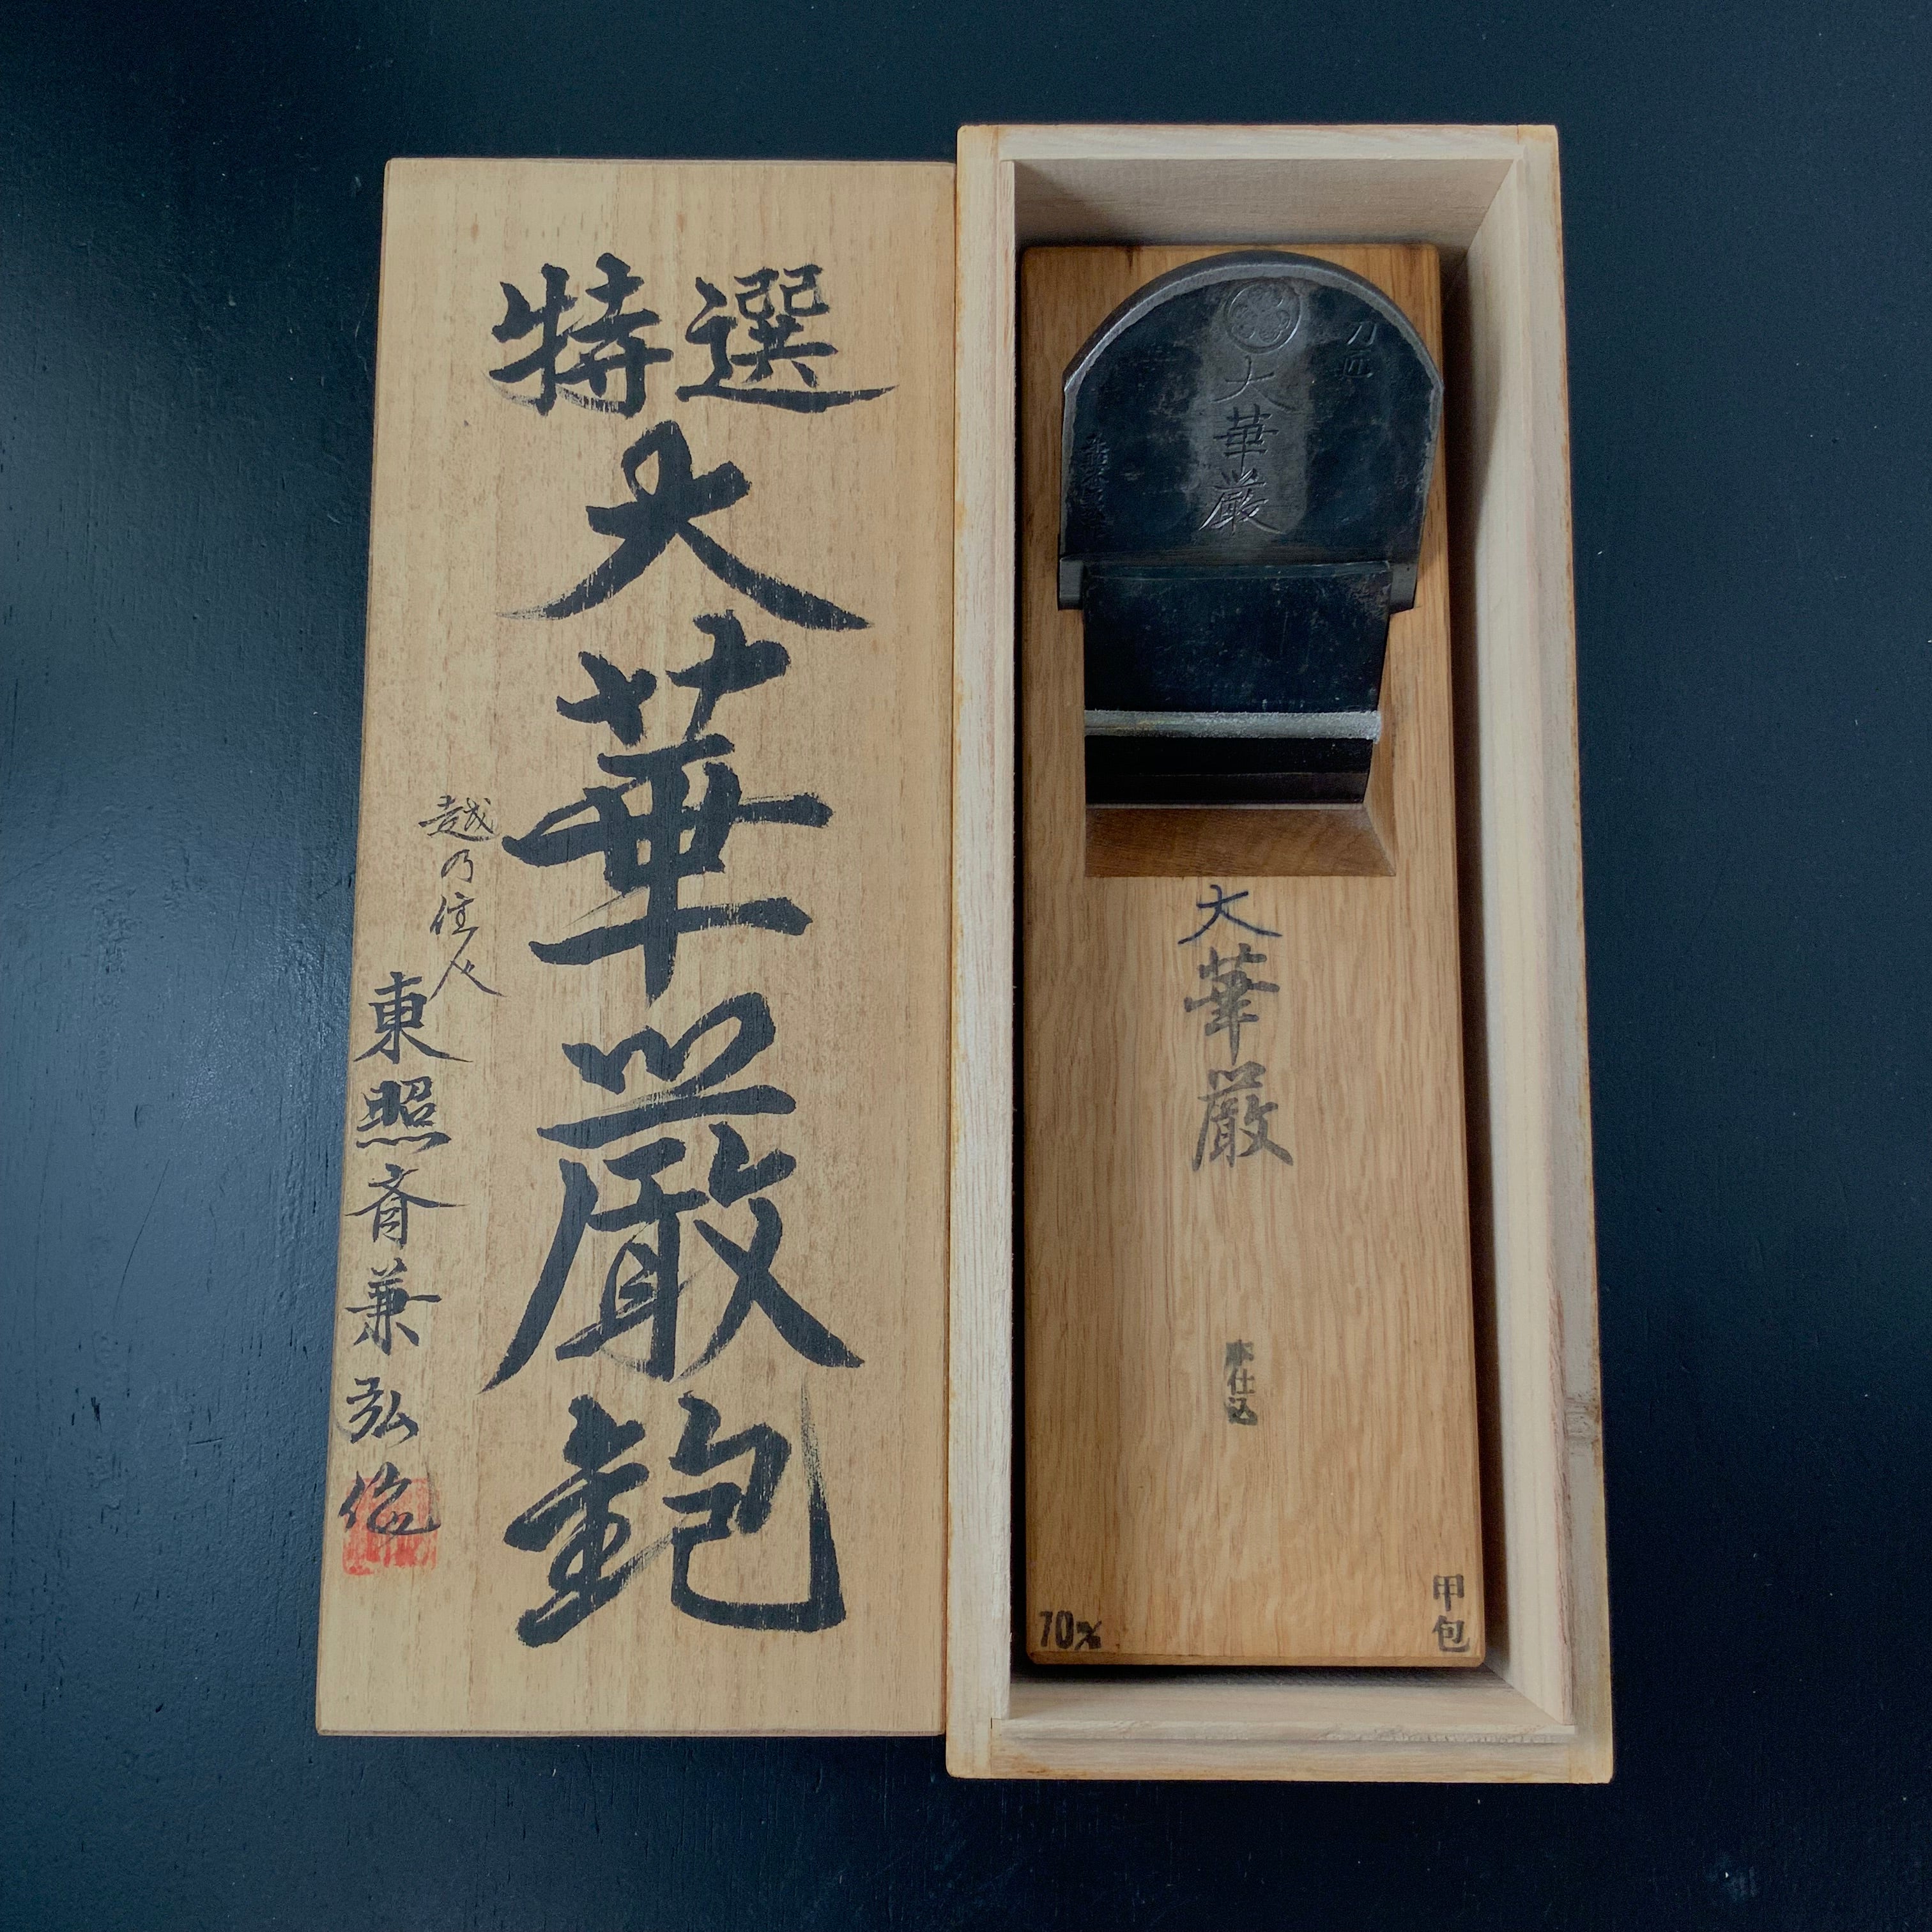 特選
大華厳鉋
越乃住人
東照斎兼弘作
刀匠
大華厳
大華厳
本仕込
甲包
70m/m